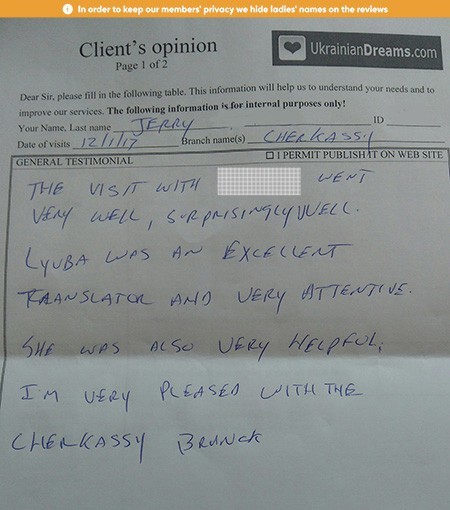 In order to keep our members' privacy we hide ladies' names on the reviews
Client's opinion
Page 1 of 2
UkrainianDreams.com
Dear Sir, please fill in the following table. This information will help us to understand your needs and to
improve our services. The following information is for internal purposes only!
Your Name, Last name JERRY ID
Date of visits 12/1/17 Branch name(s) CHERKASSY
GENERAL TESTIMONIAL I PERMIT PUBLISH IT ON WEB SITE
THE VISIT WITH WENT
VERY WELL, SURPRISINGLY WELL.
LYUBA WAS AN EXCELLENT
TRANSLATOR AND VERY ATTENTIVE.
SHE WAS ALSO VERY HELPFUL,
I'M VERY PLEASED WITH THE
CHERKASSY BRANCH